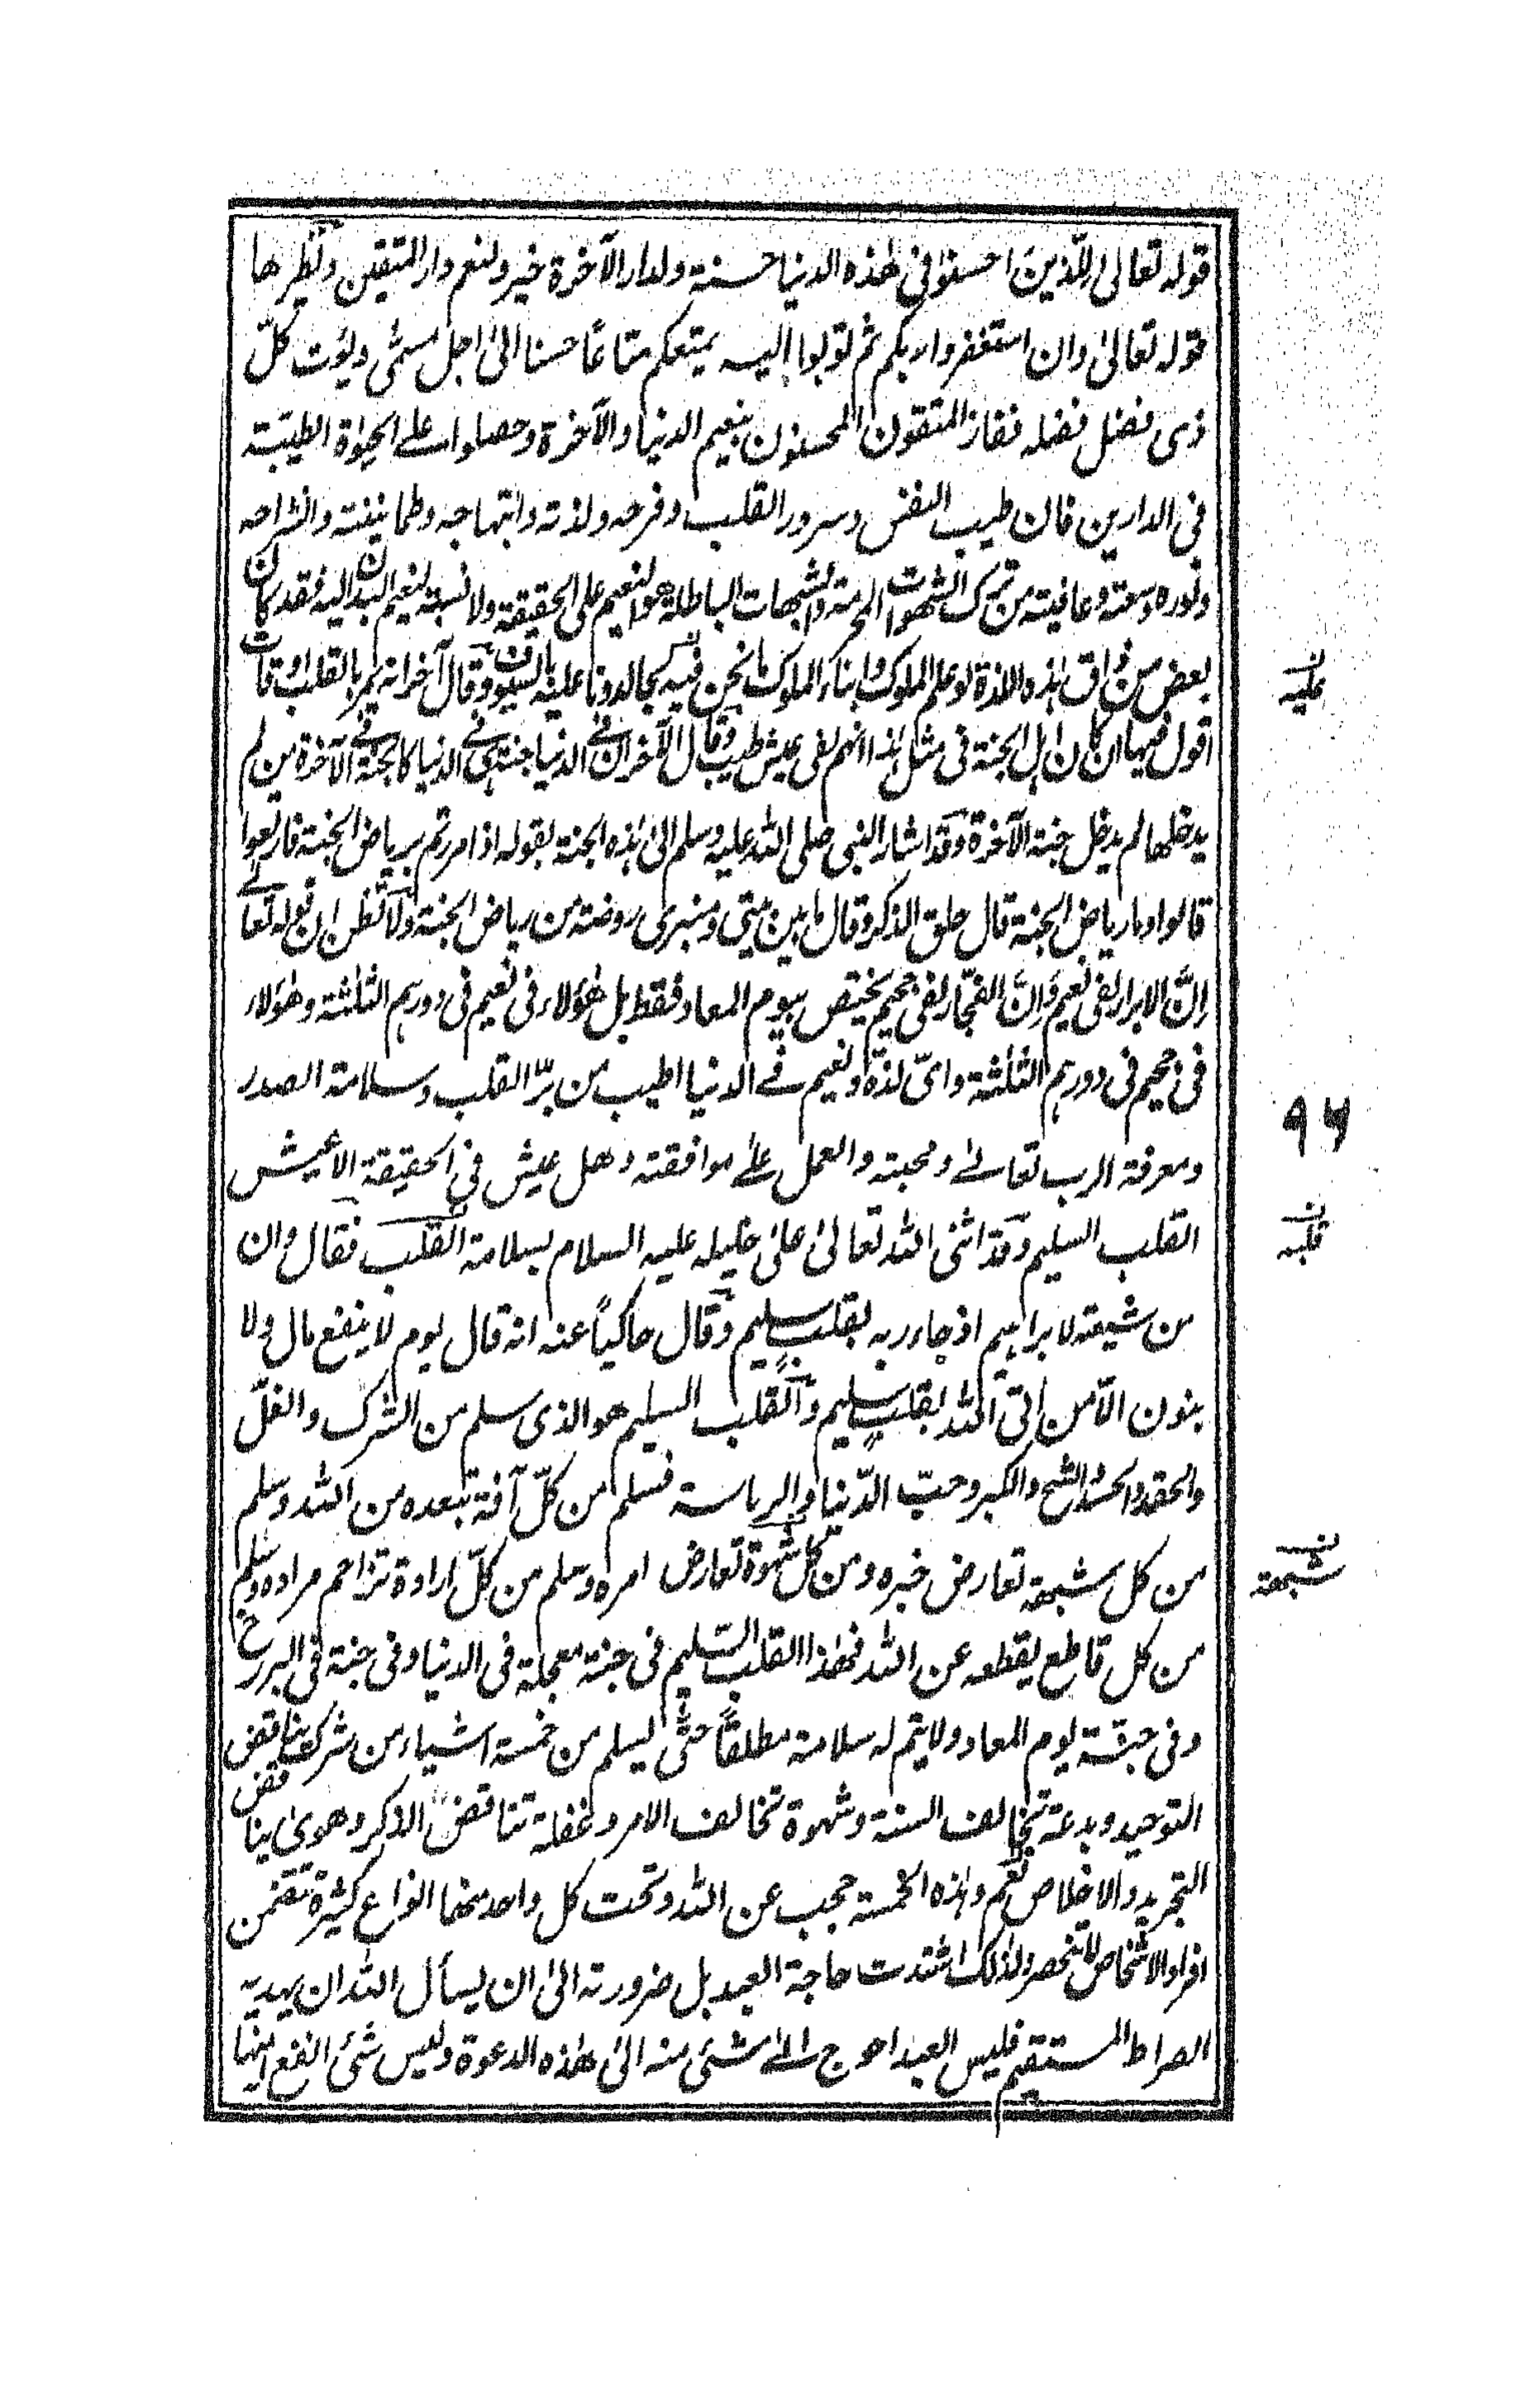 قوله تعالى للّذين احسنوا فى هذه الدنيا حسنة ولدار الآخرة خير ولنعم دار المتقين ونظيرها
قوله تعالىٰ وان استغفروا ربكم ثم توبوا اليه يمتعكم متاعًا حسنا الىٰ اجل مسمّى ويؤت كلّ
ذى فضل فضله ففاز المتقون المحسنون بنعيم الدنيا والآخرة وحصلوا على الحيوٰة الطيبة
فى الدارين فان طيب النفس وسرور القلب وفرحه ولذته وابتهاجه وطمانينته وانشراحه
ونوره وسعته وعافيته من ترك الشهوات المحرمة والشبهات الباطلة هو النعيم على الحقيقة ولا نسبة لنعيم البدن اليه فقد كان
بعض من ذاق هذه اللذة لو علم الملوك وابناء الملوك ما نحن فيه لجالدونا عليه بالسيوف وقال آخر انه يمر بالقلب اوقات
عليه
اقول فيها ان كان اهل الجنة فى مثل هذا انهم لفى عيش طيب وقال الآخر ان فى الدنيا جنة هى فى الدنيا كالجنة فى الآخرة من لم
يدخلها لم يدخل جنة الآخرة وقد اشار النبى صلى الله عليه وسلم الىٰ هذه الجنة بقوله اذا مررتم برياض الجنة فارتعوا
قالوا وما رياض الجنة قال حلق الذكر وقال ما بين بيتى ومنبرى روضة من رياض الجنة ولا تظن ان قوله تعالے
اِنَّ الابرار لفى نعيم وَاِنَّ الفجّار لفى جحيم يختص بيوم المعاد فقط بل هٰؤلاء فى نعيم فى دورهم الثلثة وهٰؤلاء
فى جحيم فى دورهم الثلثة واىّ لذة ونعيم فے الدنيا اطيب من برّ القلب وسلامة الصدر
٩٦
ومعرفة الرب تعالے ومحبته والعمل علے موافقته وهل عيش فى الحقيقة الا عيش
القلب السليم وقد اثنى الله تعالىٰ علىٰ خليله عليه السلام بسلامة القلب فقال وان
قلبه
من شيعته لابراهيم اذ جاء ربه بقلبٍ سليم وقال حاكياً عنه انه قال يوم لا ينفع مال ولا
بنون الّا من اتى الله بقلبٍ سليم والقلب السليم هو الذى سلم من الشرك والغلّ
والحقد والحسد والشح والكبر وحبّ الدّنيا والرياسة فسلم من كلّ آفة تبعده من الله وسلم
من كل شبهة تعارض خبره ومن كل شهوة تعارض امره وسلم من كلّ ارادة تزاحم مراده وسلم
شبهة
من كل قاطع يقطعه عن الله فهٰذا القلب السّليم فى جنة معجلة فى الدنيا وفى جنة فى البرزخ
وفى جنّة يوم المعاد ولا يتم له سلامة مطلقاً حتّٰى يسلم من خمسة اشياء من شرك يناقض
التوحيد وبدعة تخالف السنة وشهوة تخالف الامر وغفلة تناقض الذكر وهوىٰ يناقض
التجريد والاخلاص نعم وهذه الخمسة حجب عن الله وتحت كل واحد منها انواع كثيرة تتضمن
افراد الاشخاص لا تنحصر ولذلك اشتدت حاجة العبد بل ضرورته الىٰ ان يسأل الله ان يهديه
الصراط المستقيم فليس العبد احوج الےٰ شئى منه الىٰ هذه الدعوة وليس شئى انفع منها